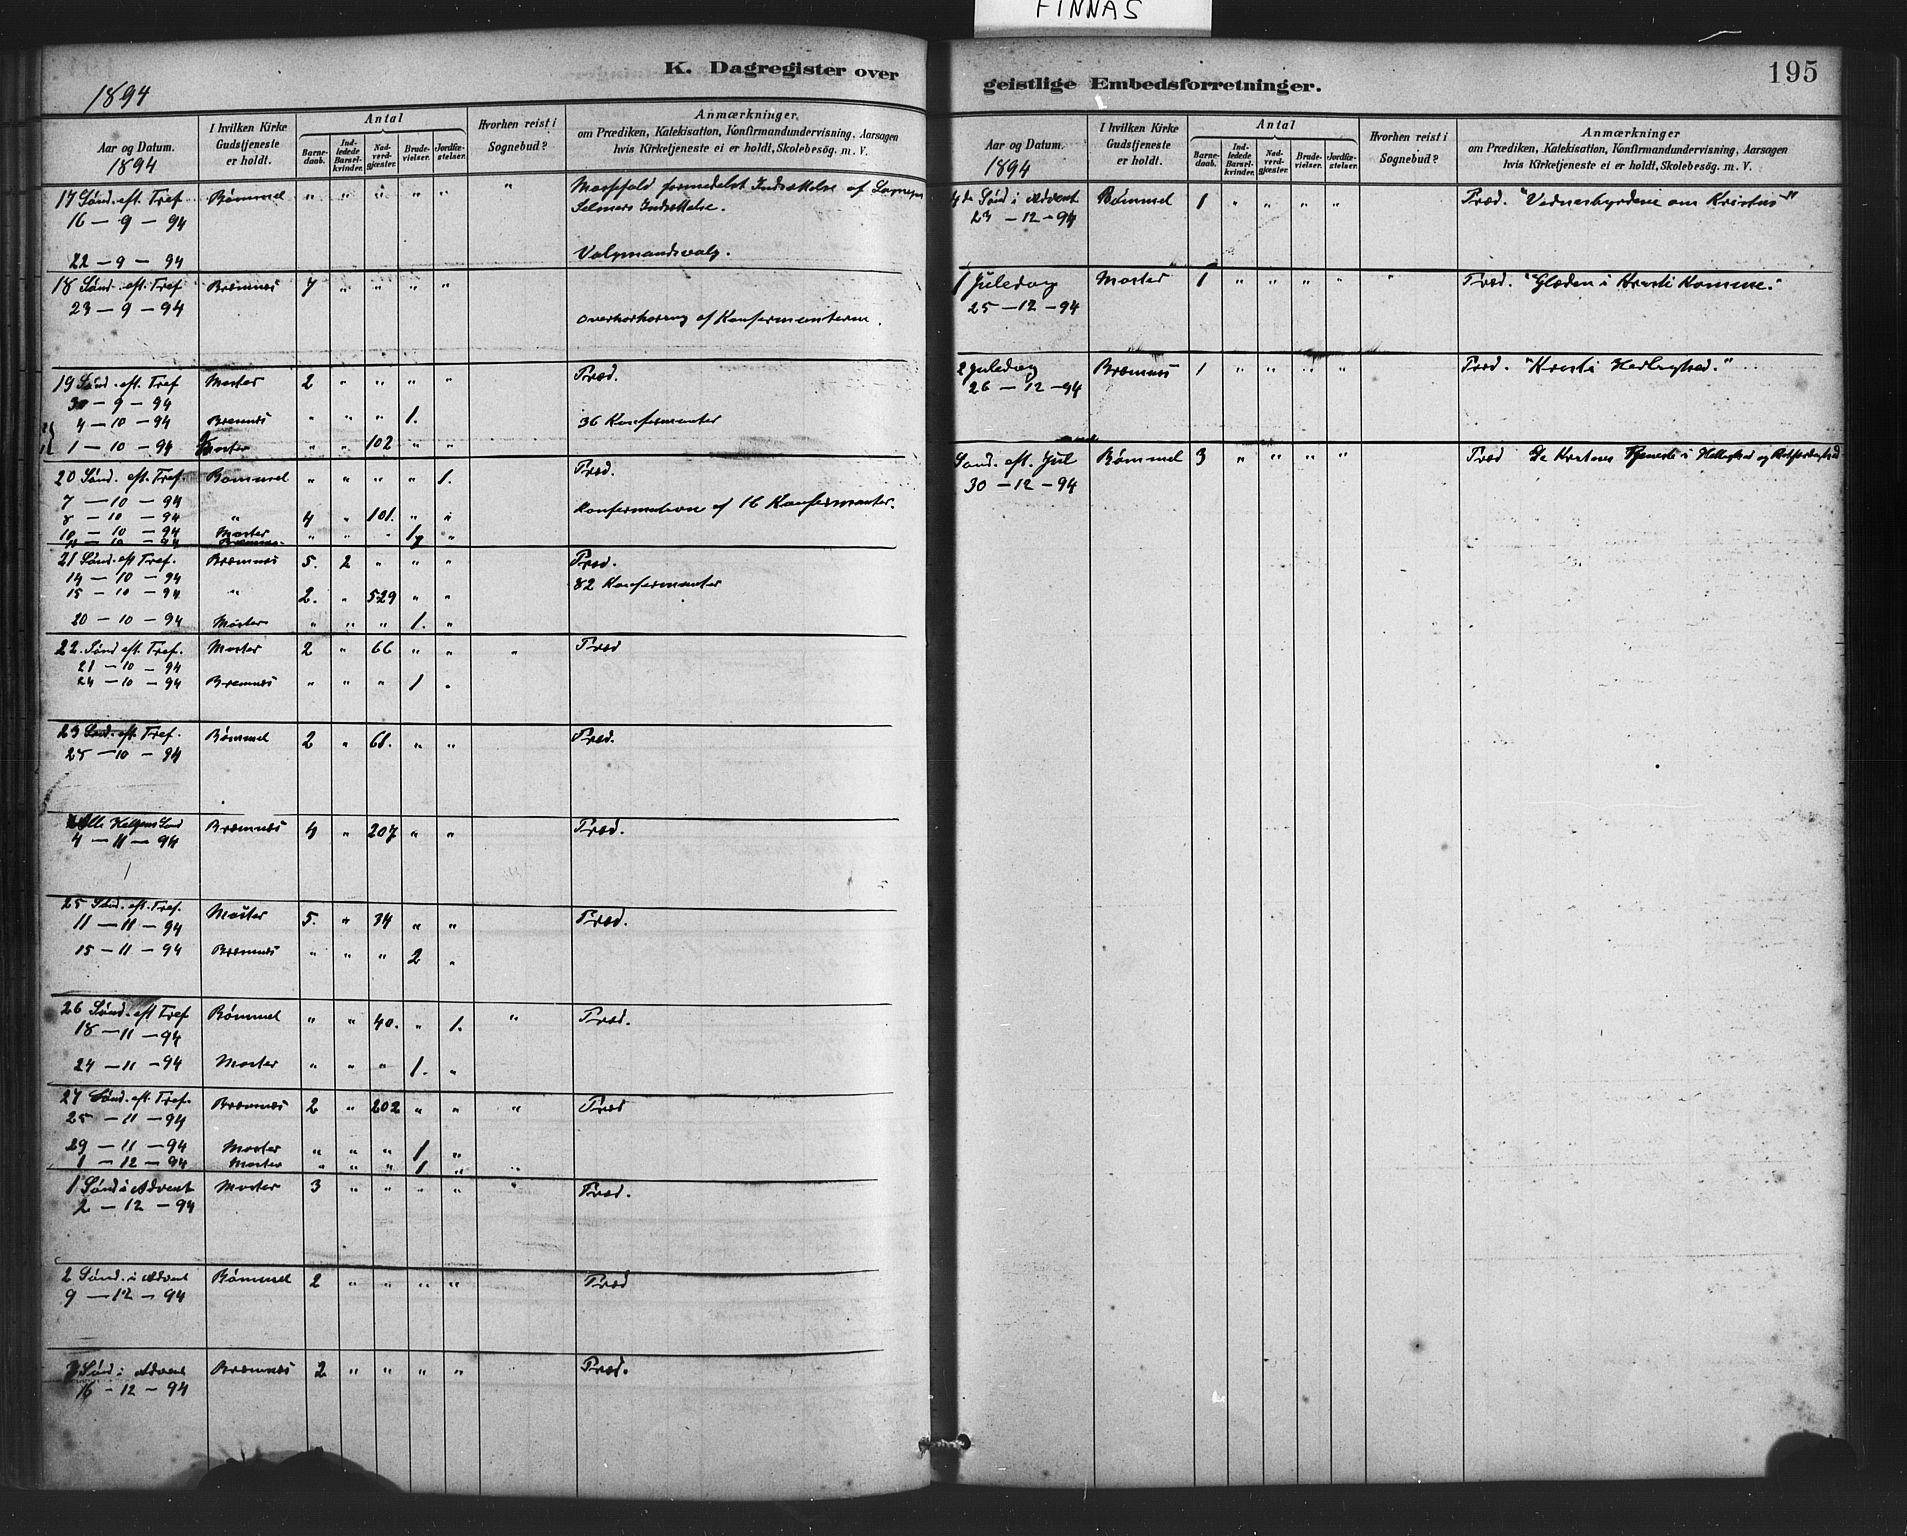 FINNÅS
K. Dagregister over
1894
Aar og Datum. 1894 | I hvilken Kirke Gudstjeneste er holdt. | Antal | Barnedaab. | Indledede Barselkvinder. | Nadverdgjæster. | Brudevielser. | Jordfæstelser. | Hvorhen reist i Sognebud? | Anmærkninger. om Prædiken, Katekisation, Konfirmandundervisning, Aarsagen hvis Kirketjeneste ei er holdt, Skolebesøg. m. V.
17 Sønd. eft. Tref Bømmel " " " " " " Messefald formedelst Indsættelse af
16 - 9 - 94 Indsættelse.
22 - 9 - 94 Valgmandsvalg.
18 Sønd. eft. Tref Bremnes 7 " " " "
23 - 9 - 94 af Konfirmanterne.
19 Sønd. eft. Tref Moster 2 " " " " Præd.
30 - 9 - 94
4 - 10 - 94 Bremnes " " " 1. 36 Konfirmanter
1 - 10 - 94 Moster " " 102 " "
20 Sønd. eft. Tref. Bømmel " " " " 1. Præd.
7 - 10 - 94 Konfirmation af 16 Konfirmanter.
8 - 10 - 94 " 4 " 101. " "
10 - 10 - 94 Moster " " " 1 "
11 - 10 - 94 Bremnes
21 Sønd. eft Tref. Bremnes 5. 2 " " " Præd.
14 - 10 - 94 82 Konfirmanter
15 - 10 - 94 " 2. " 529 " "
20 - 10 - 94 Moster " " " 1. "
22. Sønd eft. Tref. Moster 2 " 66 " " " Præd
21 - 10 - 94
24 - 10 - 94 Bremnes " " " 1 "
23 Sønd. eft. Tref. Bømmel 2 " 68. " " Præd.
25 - 10 - 94
Alle Helgens Sønd Bremnes 4 " 207 " " Præd.
4 - 11 - 94
25 Sønd. eft. Tref. Moster 5. " 34 " " Præd.
11 - 11 - 94
15 - 11 - 94 Bremnes " " " 2 "
26 Sønd. eft Tref Bømmel " " 40. " 1. " Præd.
18 - 11 - 94
24 - 11 - 94 Moster " " " 1. "
27 Sønd. eft. Tref. Bremnes 2 " 202 " " " Præd
25 - 11 - 94
29 - 11 - 94 Moster " " " 1 "
1 - 12 - 94 Moster " " " 1 " "
1 Sønd i Advent Moster 3 " " " " " Præd.
2 - 12 - 94
2 Sønd. i Advent Bømmel 2 " " " " Præd
9 - 12 - 94
3 Sønd i Advent Bremnes 2 " " " " Præd.
16 - 12 - 94
geistlige Embedsforretninger.
195
Aar og Datum. 1894 | I hvilken Kirke Gudstjeneste er holdt. | Antal | Barnedaab. | Indledede Barselkvinder. | Nadverdgjæster. | Brudevielser. | Jordfæstelser. | Hvorhen reist i Sognebud? | Anmærkninger om Prædiken, Katekisation, Konfirmandundervisning, Aarsagen hvis Kirketjeneste ei er holdt, Skolebesøg. m. V.
4de Sønd i Advent Bømmel 1 " " " " Præd. "Vidnesbyrdene om Kristus"
23 - 12 - 94
1 Juledag Moster 1 " " " " " Præd. "Glæden i Kristi Komme."
25 - 12 - 94
2 Juledag Bremnes 1 " " " " Præd. "Kristi Herlighed."
26 - 12 - 94
Sønd. eft. Jul Bømmel 3 " " " " Præd De Kristnes Tjeneste i Hellighed og Retfærdighed
30 - 12 - 94